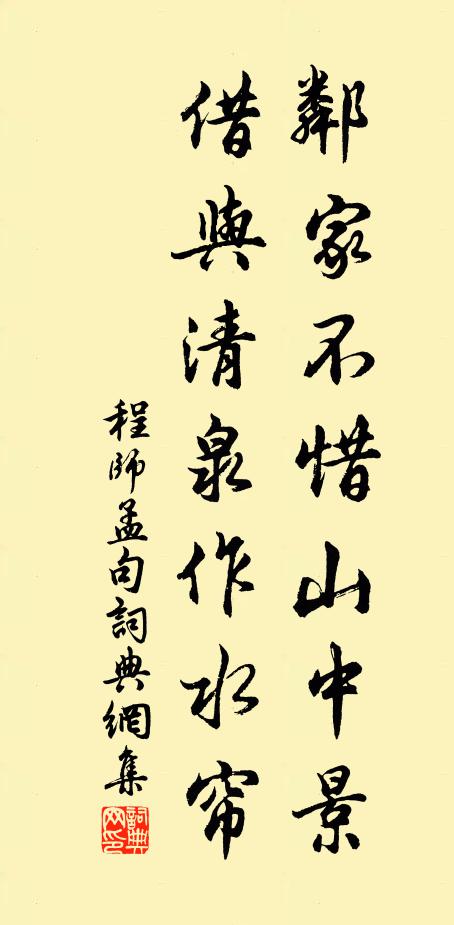 鄰家不惜山中景
借與清泉作水帘
程師孟句詞典網集
詞典網印